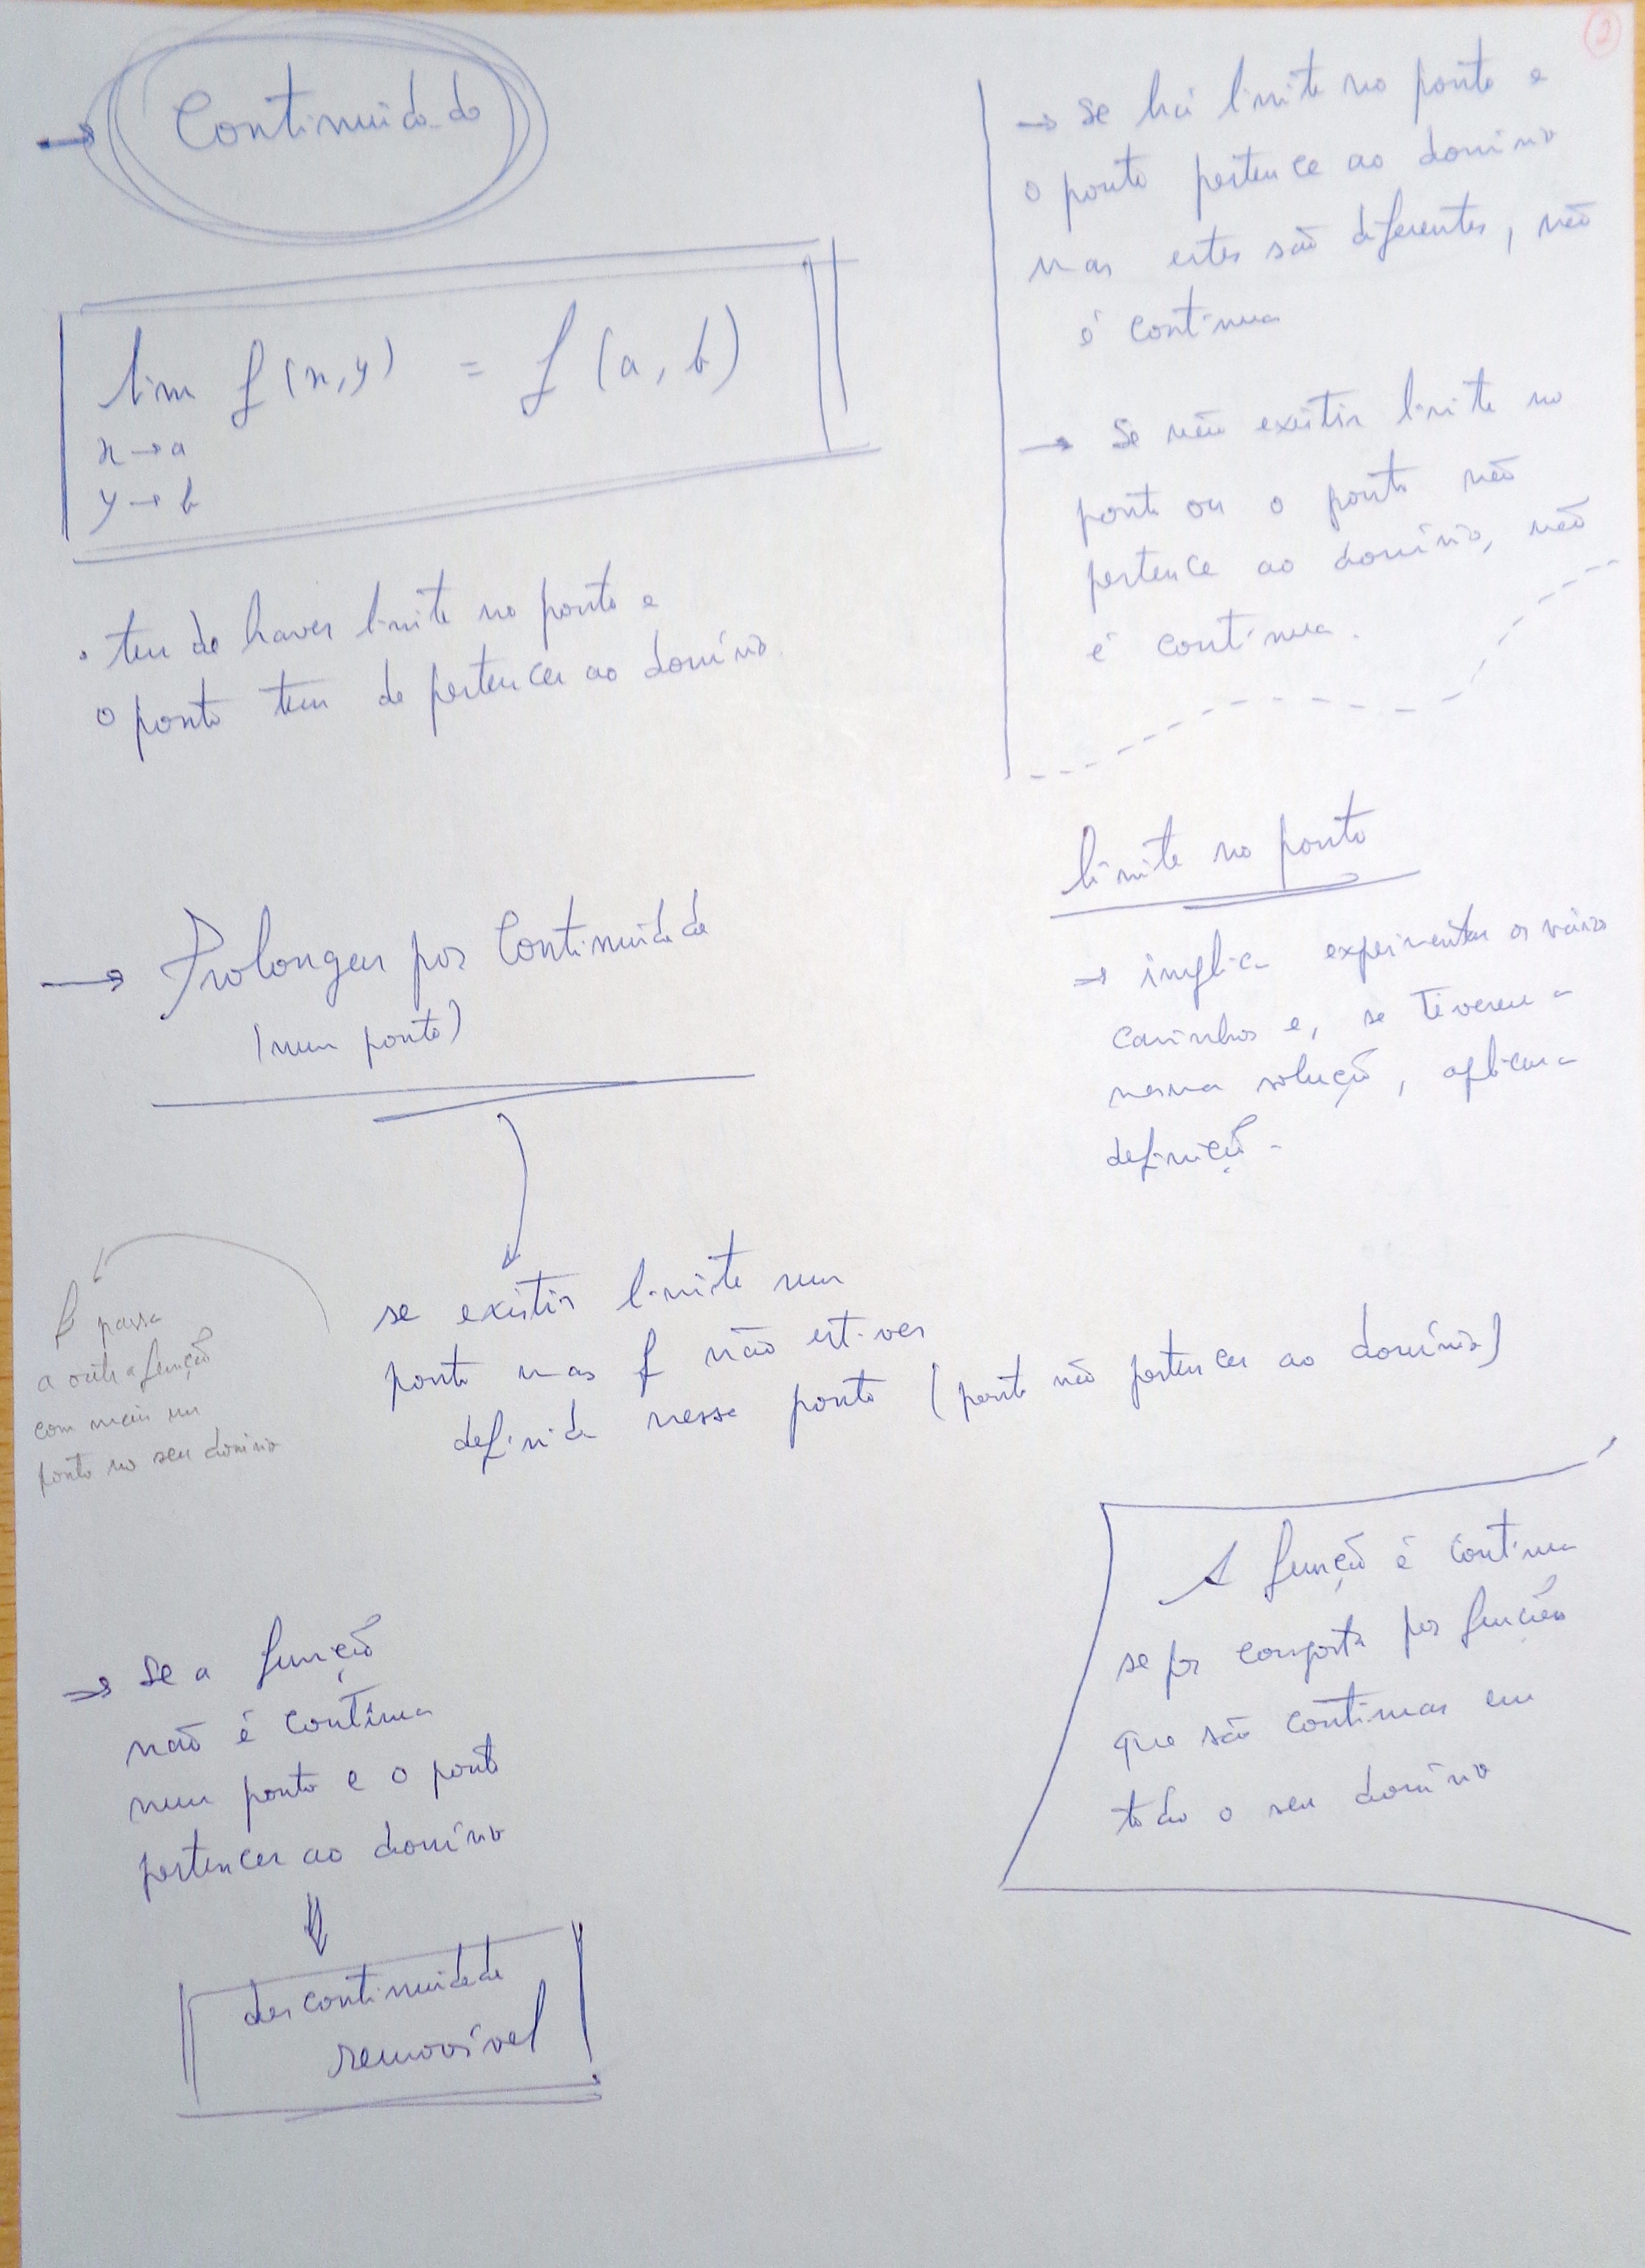 2
→ Continuidade
lim f(x,y) = f(a,b)
x→a
y→b
• tem de haver limite no ponto e
o ponto tem de pertencer ao domínio.
→ se há limite no ponto e
o ponto pertence ao domínio
mas estes são diferentes, não
é contínua
→ Se não existir limite no
ponto ou o ponto não
pertence ao domínio, não
é contínua.
limite no ponto
⇒ implica experimentar os vários
caminhos e, se tiverem a
mesma solução, aplicar a
definição.
→ Prolongar por Continuidade
(num ponto)
se existir limite num
ponto mas f não estiver
definida nesse ponto (ponto não pertencer ao domínio)
f passa
a outra função
com mais um
ponto no seu domínio
A função é contínua
se for composta por funções
que são contínuas em
todo o seu domínio
⇒ Se a função
não é contínua
num ponto e o ponto
pertencer ao domínio
⇓
descontinuidade
removível